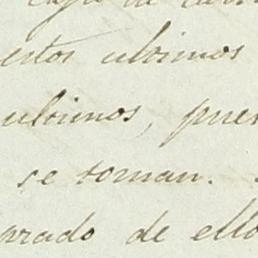 estos ultimos
ultimos, pue
se toman.
arado de ello